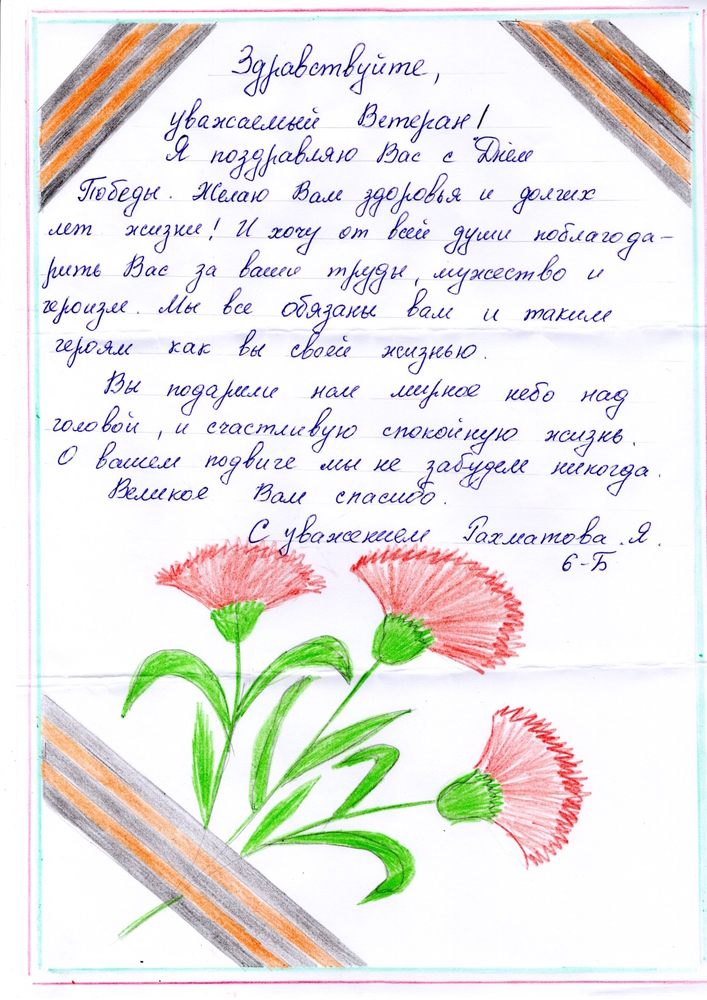 Здравствуйте,
уважаемый Ветеран!
Я поздравляю Вас с Днём
Победы. Желаю Вам здоровья и долгих
лет жизни! И хочу от всей души поблагода-
рить Вас за ваши труды, мужество и
героизм. Мы все обязаны вам и таким
героям как вы своей жизнью.
Вы подарили нам мирное небо над
головой, и счастливую спокойную жизнь.
О вашем подвиге мы не забудем никогда.
Великое Вам спасибо.
С уважением Рахматова Я.
6-Б